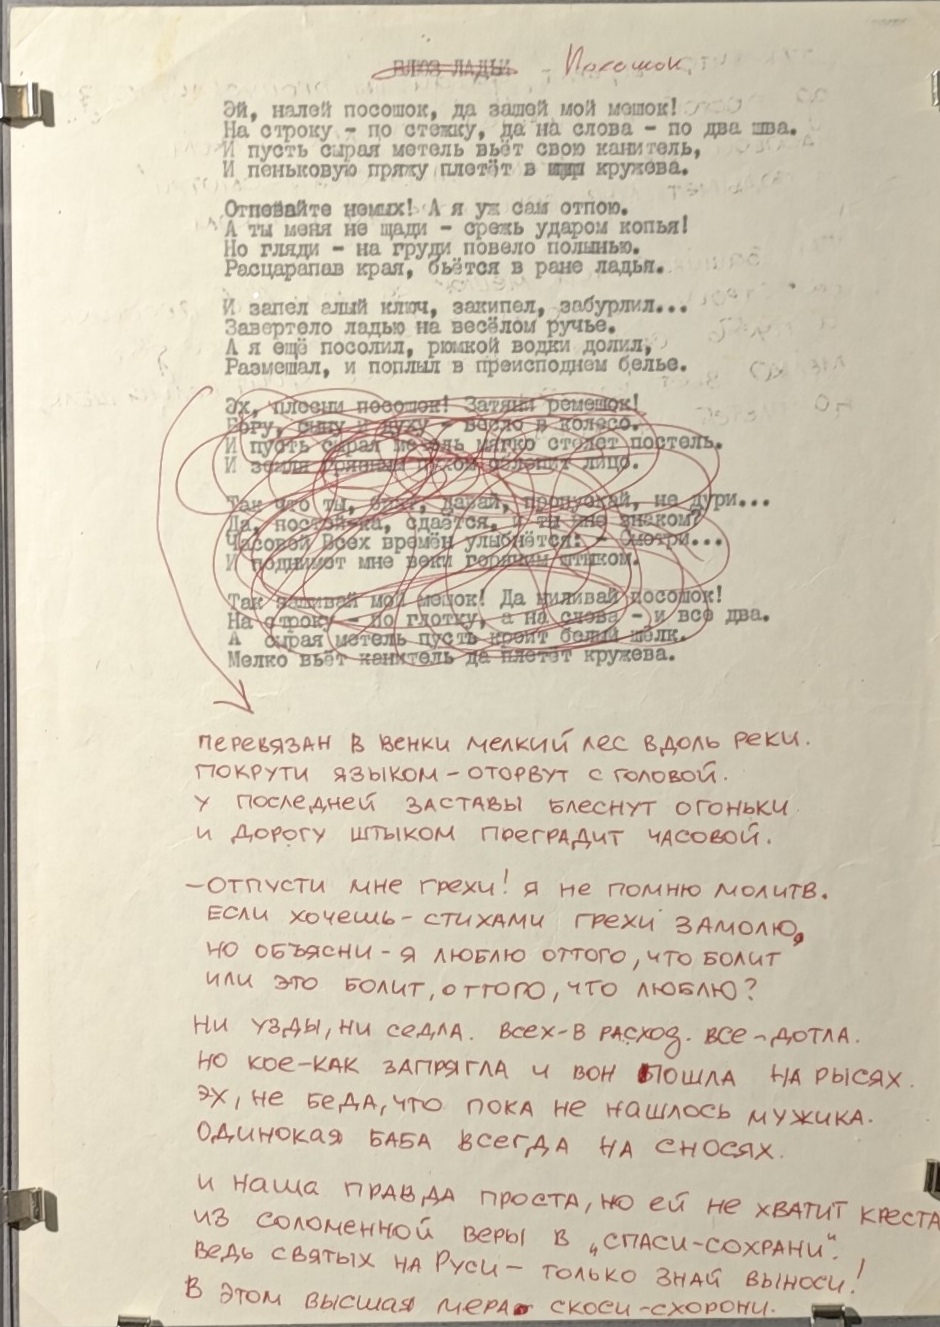 БЛЮЗ ЛАДЬИ Посошок
Эй, налей посошок, да зашей мой мешок!
На строку - по стежку, да на слова - по два шва.
И пусть сырая метель вьёт свою канитель,
И пеньковую пряжу плетёт в кружева.
Отпевайте немых! А я уж сам отпою.
А ты меня не щади - срежь ударом копья!
Но гляди - на груди повело полынью.
Расцарапав края, бьётся в ране ладья.
И запел алый ключ, закипел, забурлил...
Завертело ладью на весёлом ручье.
А я ещё посолил, рюмкой водки долил,
Размешал, и поплыл в преисподнем белье.
Эх, плесни посошок! Затяни ремешок!
Богу, сыну и духу - весло в колесо.
И пусть сырая метель мягко стелет постель.
И земля грязным пухом облепит лицо.
Так что ты, брат, давай, пропускай, не дури...
Да, постой-ка, сдаётся, и ты мне знаком?
Часовой всех времён улыбнётся: - Смотри...
И поднимет мне веки горячим штыком.
Так зашивай мой мешок! Да наливай посошок!
На строку - по глотку, а на слова - и все два.
А сырая метель пусть кроит белый шёлк.
Мелко вьёт канитель да плетёт кружева.
ПЕРЕВЯЗАН В ВЕНКИ МЕЛКИЙ ЛЕС ВДОЛЬ РЕКИ.
ПОКРУТИ ЯЗЫКОМ - ОТОРВУТ С ГОЛОВОЙ.
У ПОСЛЕДНЕЙ ЗАСТАВЫ БЛЕСНУТ ОГОНЬКИ
И ДОРОГУ ШТЫКОМ ПРЕГРАДИТ ЧАСОВОЙ.
- ОТПУСТИ МНЕ ГРЕХИ! Я НЕ ПОМНЮ МОЛИТВ.
ЕСЛИ ХОЧЕШЬ - СТИХАМИ ГРЕХИ ЗАМОЛЮ,
НО ОБЪЯСНИ - Я ЛЮБЛЮ ОТТОГО, ЧТО БОЛИТ
ИЛИ ЭТО БОЛИТ, ОТТОГО, ЧТО ЛЮБЛЮ?
НИ УЗДЫ, НИ СЕДЛА. ВСЕХ - В РАСХОД. ВСЕ - ДОТЛА.
НО КОЕ-КАК ЗАПРЯГЛА И ВОН ПОШЛА НА РЫСЯХ.
ЭХ, НЕ БЕДА, ЧТО ПОКА НЕ НАШЛОСЬ МУЖИКА.
ОДИНОКАЯ БАБА ВСЕГДА НА СНОСЯХ.
И НАША ПРАВДА ПРОСТА, НО ЕЙ НЕ ХВАТИТ КРЕСТА
ИЗ СОЛОМЕННОЙ ВЕРЫ В „СПАСИ-СОХРАНИ".
ВЕДЬ СВЯТЫХ НА РУСИ - ТОЛЬКО ЗНАЙ ВЫНОСИ!
В ЭТОМ ВЫСШАЯ МЕРА СКОСИ-СХОРОНИ.